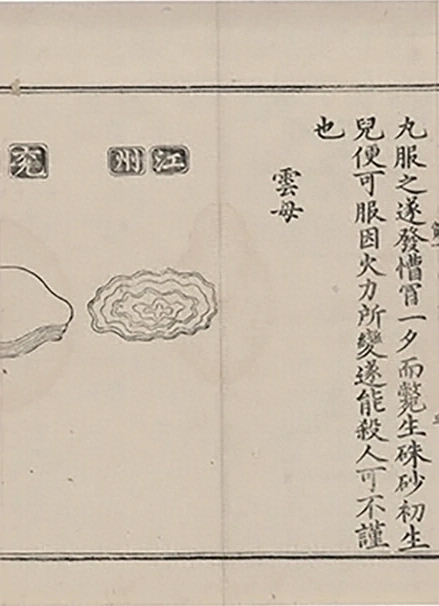 丸服之遂發懵冒一夕而斃生硃砂初生
兒便可服因火力所變遂能殺人可不謹
也
雲母
江州
兖